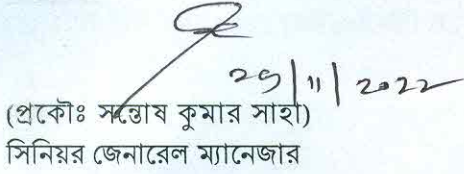 29|11|2022
(প্রকৌঃ সন্তোষ কুমার সাহা)
সিনিয়র জেনারেল ম্যানেজার